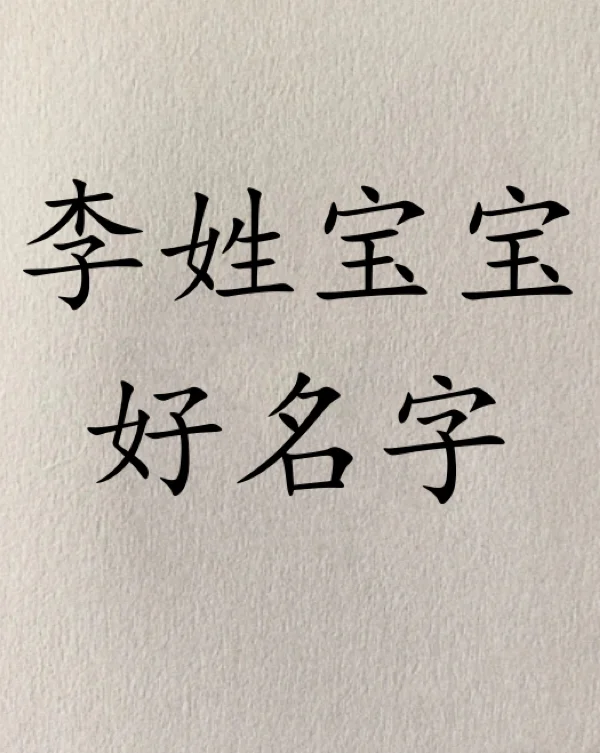 李姓宝宝
好名字